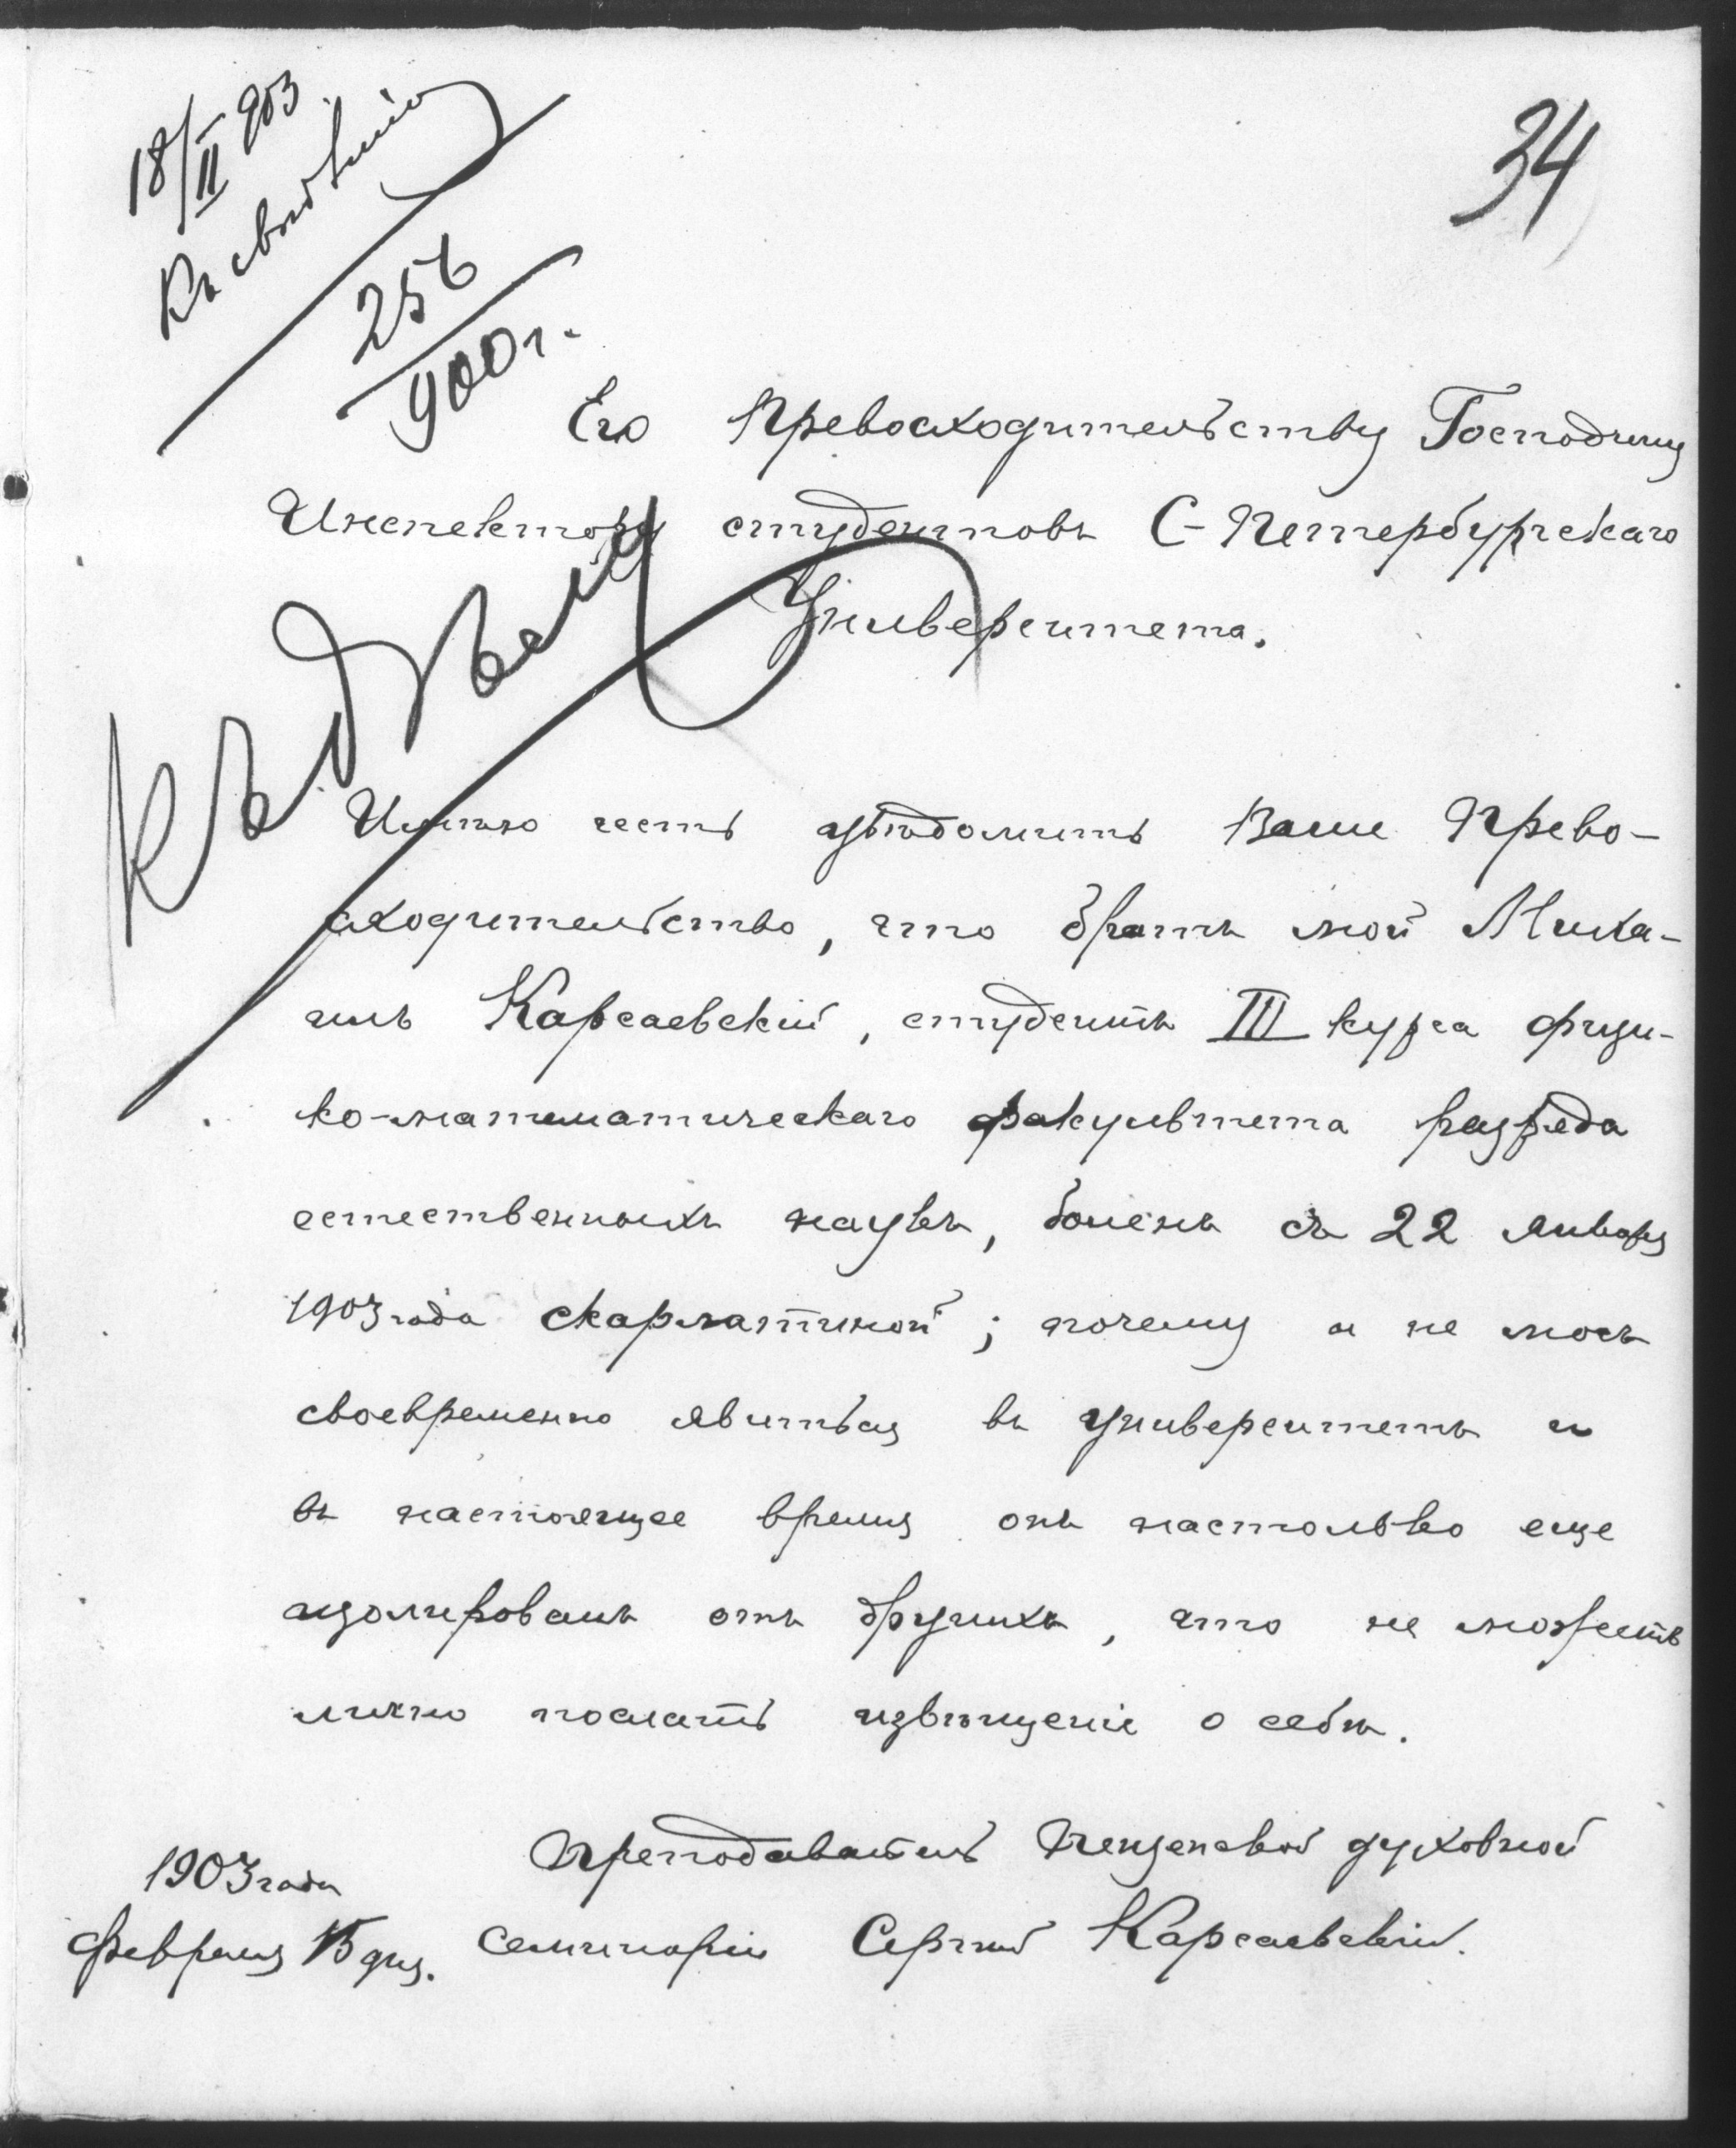 18/II 903
Къ свѣдѣнію
34
256
900 г.
Его Превосходительству Господину
Инспектору студентовъ С-Петербургскаго
Университета.
Къ дѣлу
Имѣю честь увѣдомить Ваше Прево-
сходительство, что братъ мой Миха-
илъ Карсаевскій, студентъ III курса физи-
ко-математическаго факультета разряда
естественныхъ наукъ, боленъ съ 22 января
1903 года скарлатиной; почему и не могъ
своевременно явиться въ университетъ и
въ настоящее время онъ настолько еще
изолированъ отъ другихъ, что не можетъ
лично послать извѣщеніе о себѣ.
Преподаватель Пензенской духовной
семинаріи Сергій Карсаевскій.
1903 года
февраля 15 дня.